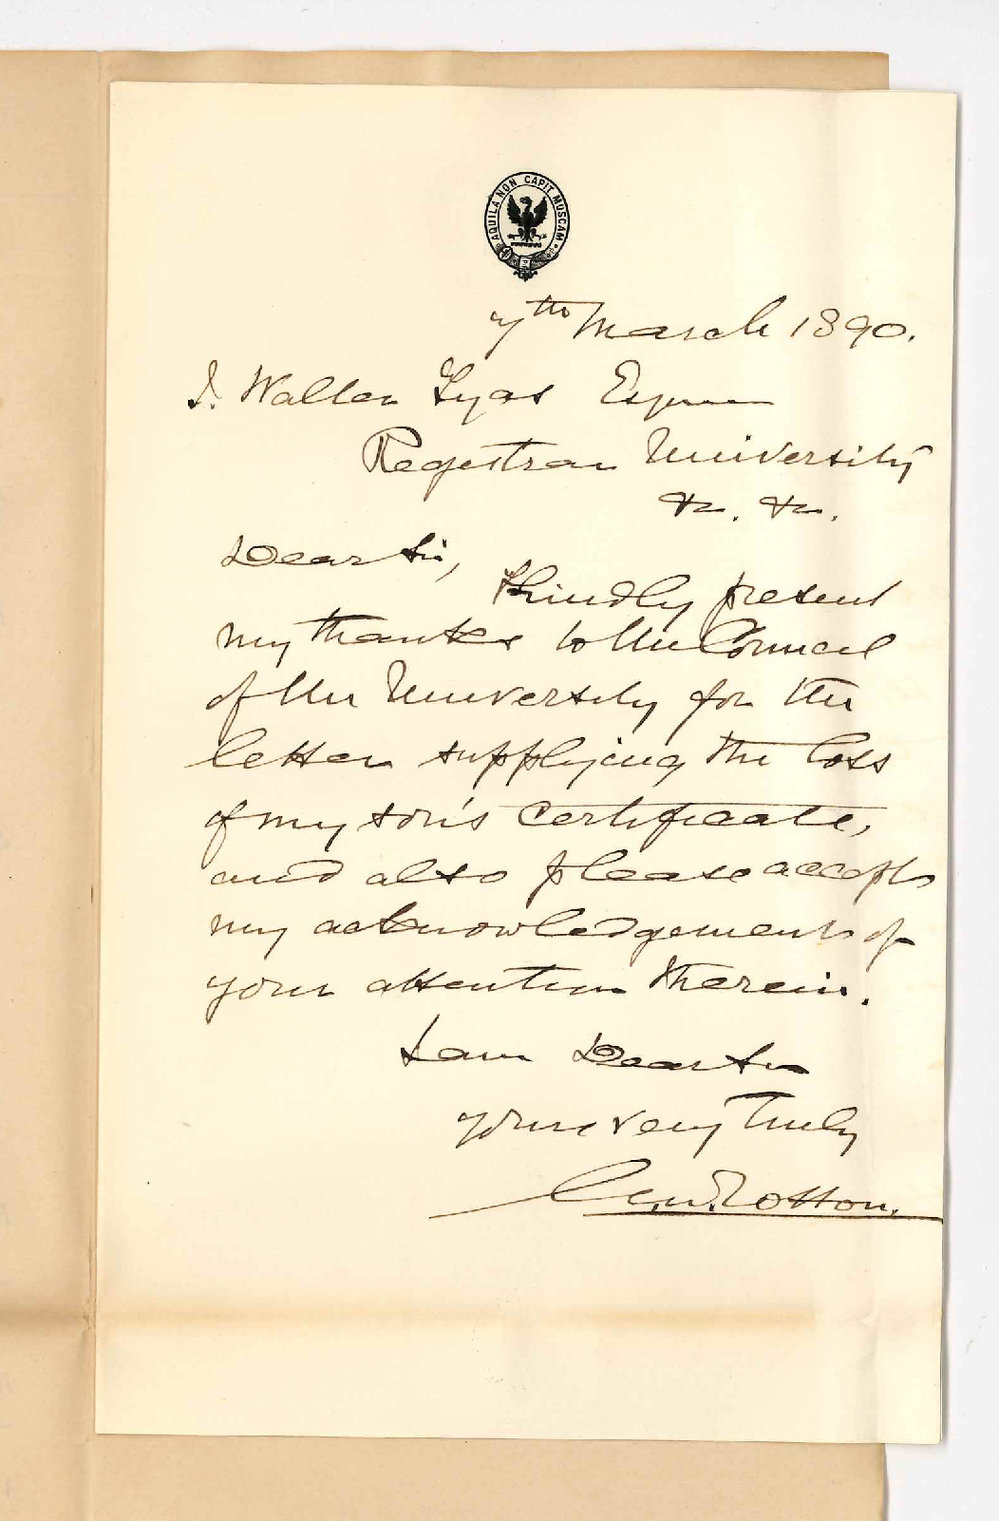 AQUILA NON CAPIT MUSCAM
7th March 1890.
J. Walter Tyas Esquire
Registrar University
&c. &c.
Dear Sir,
Kindly present
my thanks to the Council
of the University for the
letter supplying the loss
of my son's certificate,
and also please accept
my acknowledgements of
your attention therein.
I am Dear Sir
yours very truly
Cotton.